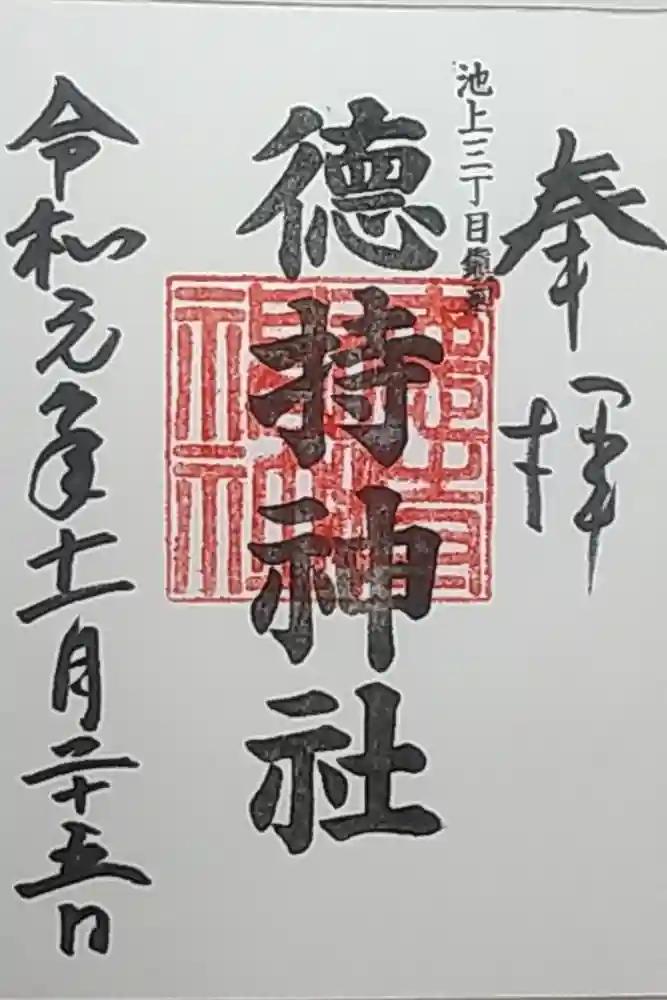 奉拝
池上三丁目鎮守
徳持神社
令和元年十一月二十五日